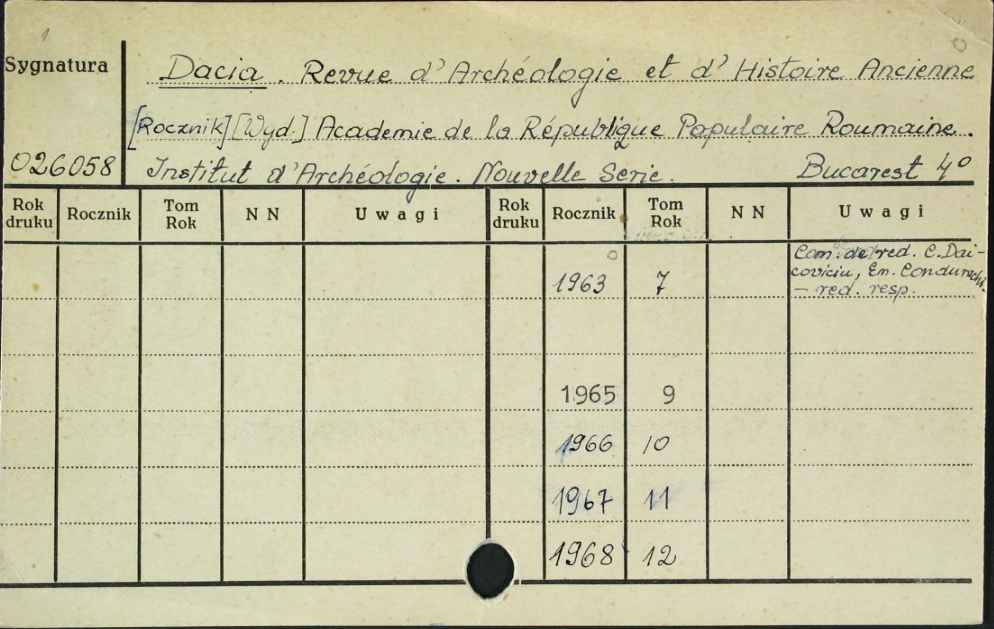 1
Sygnatura
Dacia. Revue d'Archéologie et d'Histoire Ancienne
[Rocznik] [Wyd.] Academie de la République Populaire Roumaine.
026058 Institut d'Archéologie. Nouvelle Serie. Bucarest 4º
Rok druku Rocznik Tom Rok N N Uwagi Rok druku Rocznik Tom Rok N N Uwagi
1963 7 Com. de red. C. Dai-
coviciu, Em. Condurachi
- red. resp.
1965 9
1966 10
1967 11
1968 12